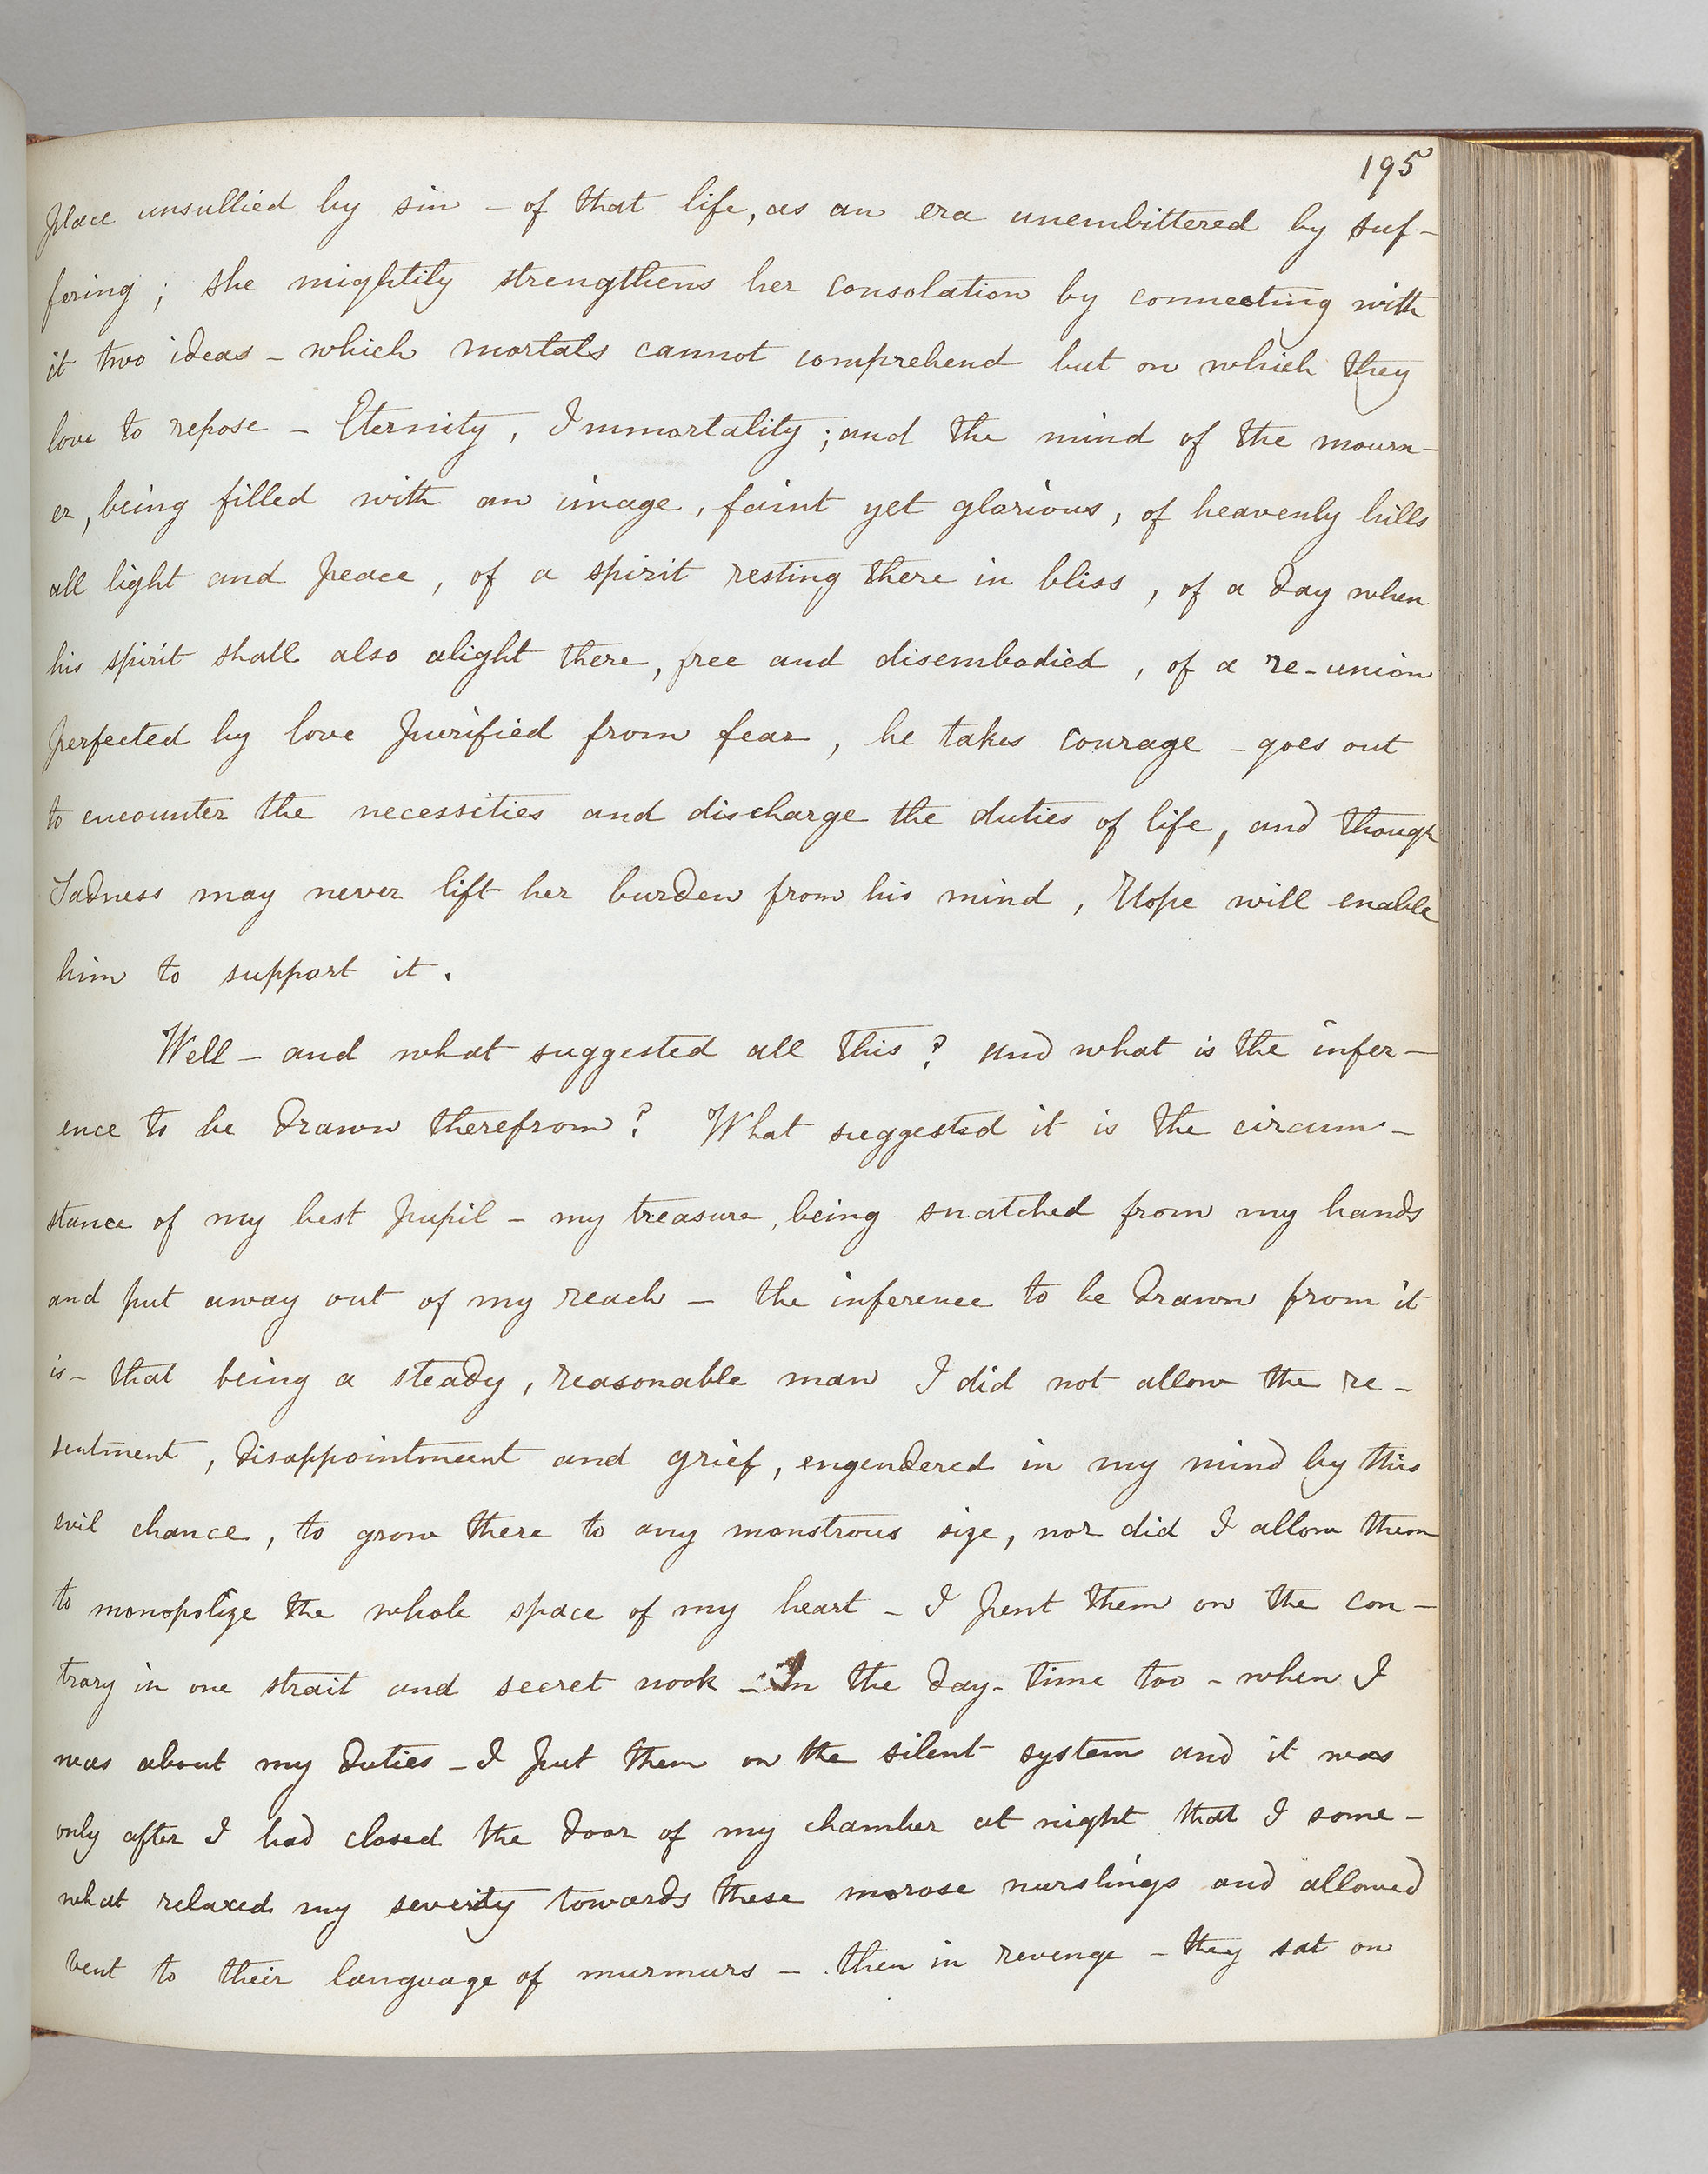 195
place unsullied by sin - of that life, as an era unembittered by suf-
fering ; she mightily strengthens her consolation by connecting with
it two ideas - which mortals cannot comprehend but on which they
love to repose - Eternity, Immortality ; and the mind of the mourn-
er, being filled with an image, faint yet glorious, of heavenly hills
all light and peace, of a spirit resting there in bliss, of a day when
his spirit shall also alight there, free and disembodied, of a re-union
perfected by love purified from fear, he takes courage - goes out
to encounter the necessities and discharge the duties of life, and though
Sadness may never lift her burden from his mind, Hope will enable
him to support it.
Well - and what suggested all this? and what is the infer-
ence to be drawn therefrom? What suggested it is the circum-
stance of my best pupil - my treasure, being snatched from my hands
and put away out of my reach - the inference to be drawn from it
is - that being a steady, reasonable man I did not allow the re-
sentment, disappointment and grief, engendered in my mind by this
evil chance, to grow there to any monstrous size, nor did I allow them
to monopolize the whole space of my heart - I pent them on the con-
trary in one strait and secret nook - In the day-time too - when I
was about my duties - I put them on the silent system and it was
only after I had closed the door of my chamber at night that I some-
what relaxed my severity towards these morose nurslings and allowed
vent to their language of murmurs - then in revenge - they sat on